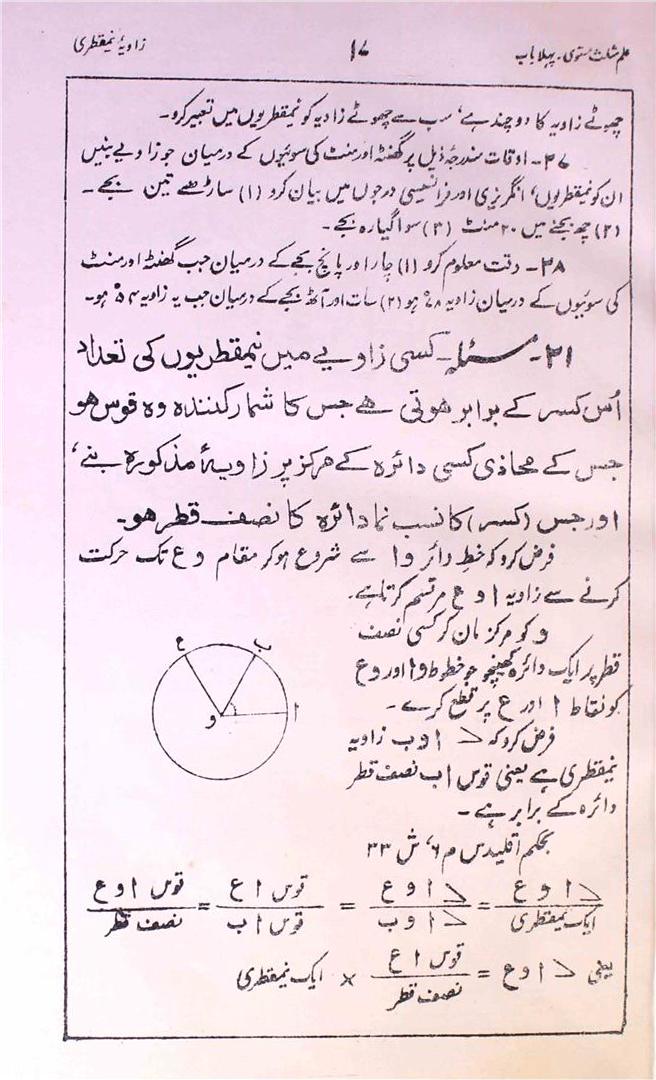 علم مثلث مستوی۔ پہلا باب ۱۷ زاویۂ نیمقطری
چھوٹے زاویہ کا دو چند ہے، سب سے چھوٹے زاویہ کو نمقطریوں میں تعبیر کرو۔
۳۷۔ اوقات مندرجۂ ذیل پر گھنٹہ اور منٹ کی سوئیوں کے درمیان جو زاویے بنیں
ان کو نیمقطریوں، انگریزی اور فرانسیسی درجوں میں بیان کرو (۱) ساڑھے تین بجے۔
(۲) چھ بجنے میں ۲۰ منٹ (۳) سوا گیارہ بجے۔
۳۸۔ وقت معلوم کرو (۱) چار اور پانچ بجے کے درمیان جب گھنٹہ اور منٹ
کی سوئیوں کے درمیان زاویہ ہو (۲) سات اور آٹھ بجے کے درمیان جب یہ زاویہ ۵۴° ہو۔
۲۱۔ مسئلہ۔ کسی زاویے میں نیمقطریوں کی تعداد
اُس کسر کے برابر ہوتی ہے جس کا شمار کنندہ وہ قوس ہو
جس کے محاذی کسی دائرہ کے مرکز پر زاویۂ مذکورہ بنے،
اور جس (کسر) کا نسب نما دائرہ کا نصف قطر ہو۔
فرض کرو کہ خط دائر و ا سے شروع ہو کر مقام و ع تک حرکت
کرنے سے زاویہ ا و ع مرتسم کرتا ہے۔
و کو مرکز مان کر کسی نصف
قطر پر ایک دائرہ کھینچو جو خطوط و ا اور و ع
کو نقاط ا اور ع پر قطع کرے۔
فرض کرو کہ > ا و ب زاویہ
نیمقطری ہے یعنی قوس ا ب نصف قطر
دائرہ کے برابر ہے۔
ع ب
و ا
بحکم اقلیدس م ۶، ش ۳۳
> ا و ع / ایک نیمقطری = > ا و ع / > ا و ب = قوس ا ع / قوس ا ب = قوس ا و ع / نصف قطر
یعنی > ا و ع = قوس ا ع / نصف قطر × ایک نیمقطری